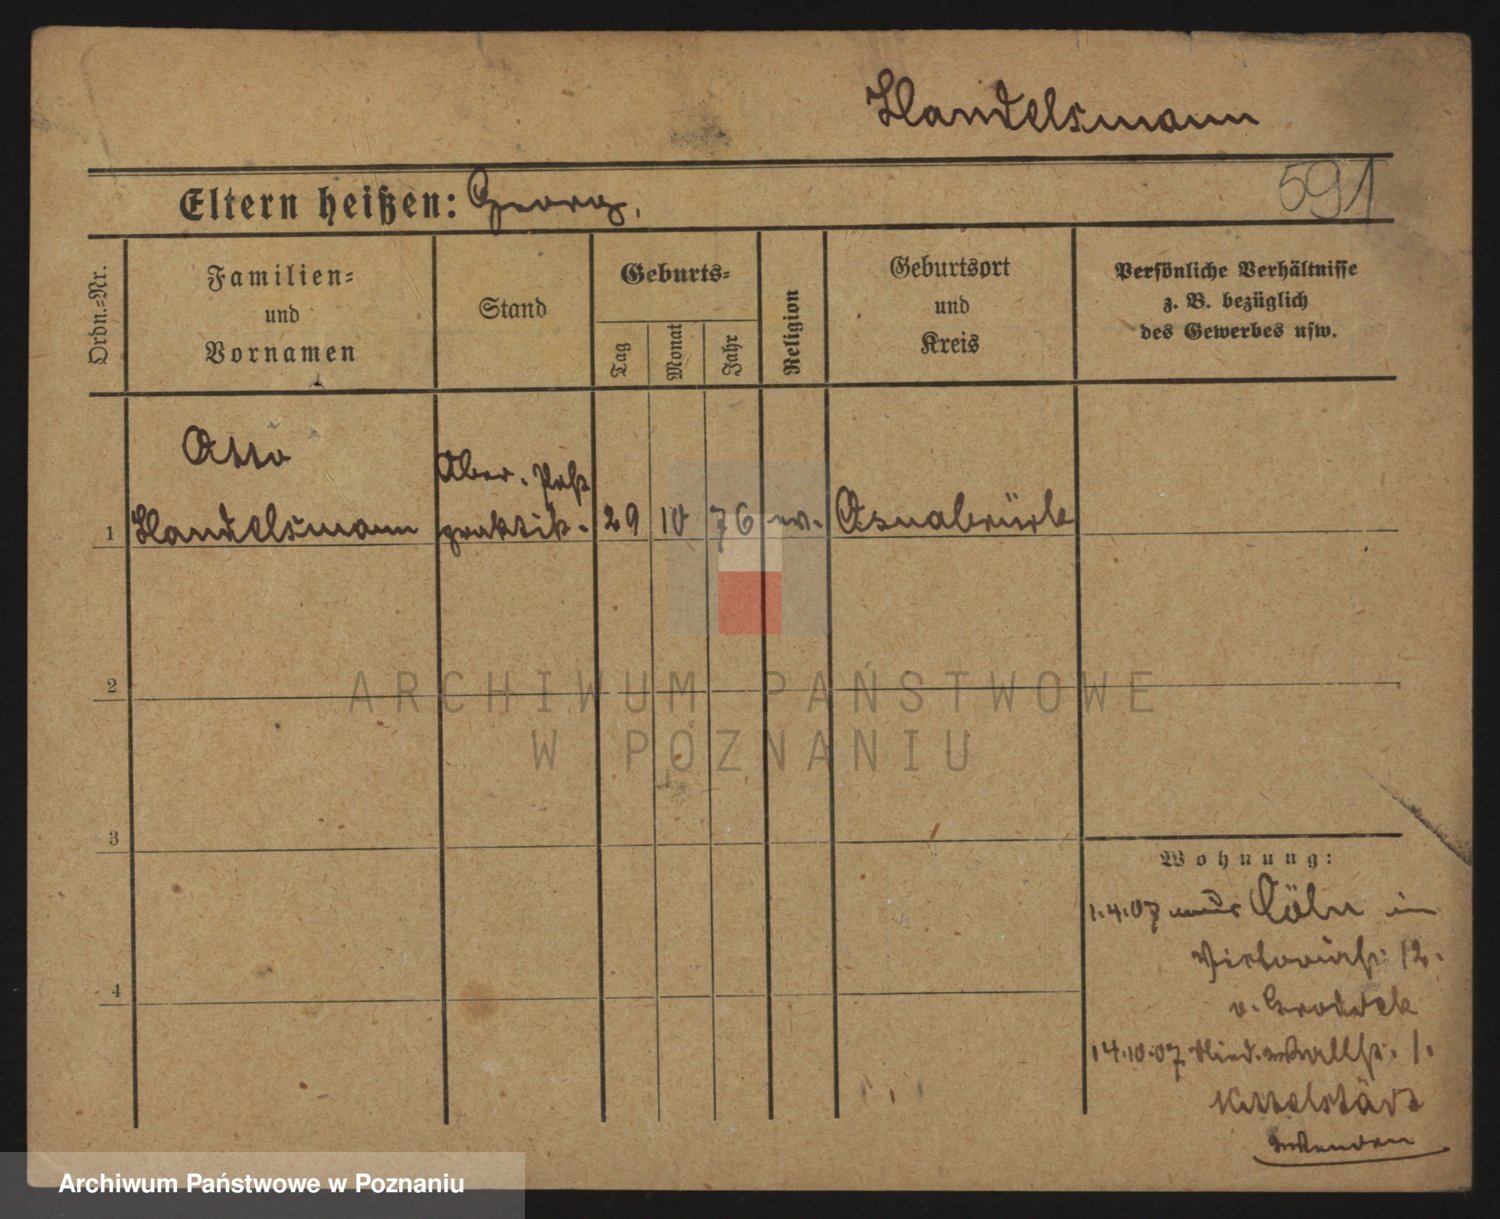 Handelsmann
Eltern heißen: Georg.
591
Ordn.-Nr.
Familien-
und
Vornamen
Stand
Geburts-
Tag
Monat
Jahr
Religion
Geburtsort
und
Kreis
Persönliche Verhältnisse
z. B. bezüglich
des Gewerbes usw.
Otto
Ober. Post
1 Handelsmann praktik. 29 10 76 ev. Osnabrück
2
3
4
Wohnung:
1.4.07 Cöln in
Victoriastr. 12.
v.
14.10.07 1.
Kittelstädt
wenden
ARCHIWUM PAŃSTWOWE
W POZNANIU
Archiwum Państwowe w Poznaniu